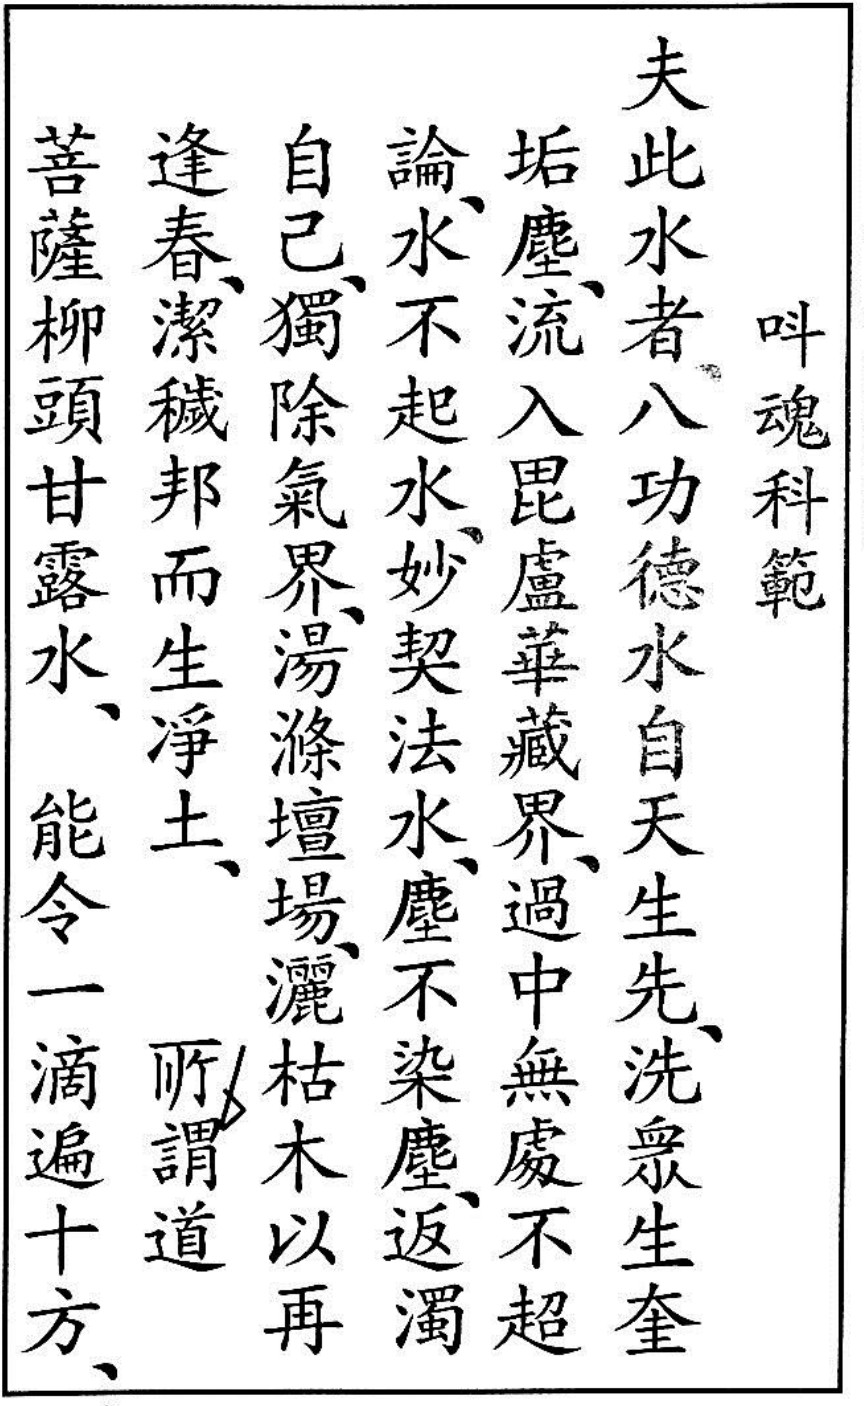 呌魂科範
夫此水者、八功德水自天生先、洗眾生奎
垢塵、流入毘盧華藏界、過中無處不超
論、水不起水、妙契法水、塵不染塵、返濁
自己、獨除氣界、湯滌壇場、灑枯木以再
逢春、潔穢邦而生凈土、 所謂道
菩薩柳頭甘露水、 能令一滴遍十方、